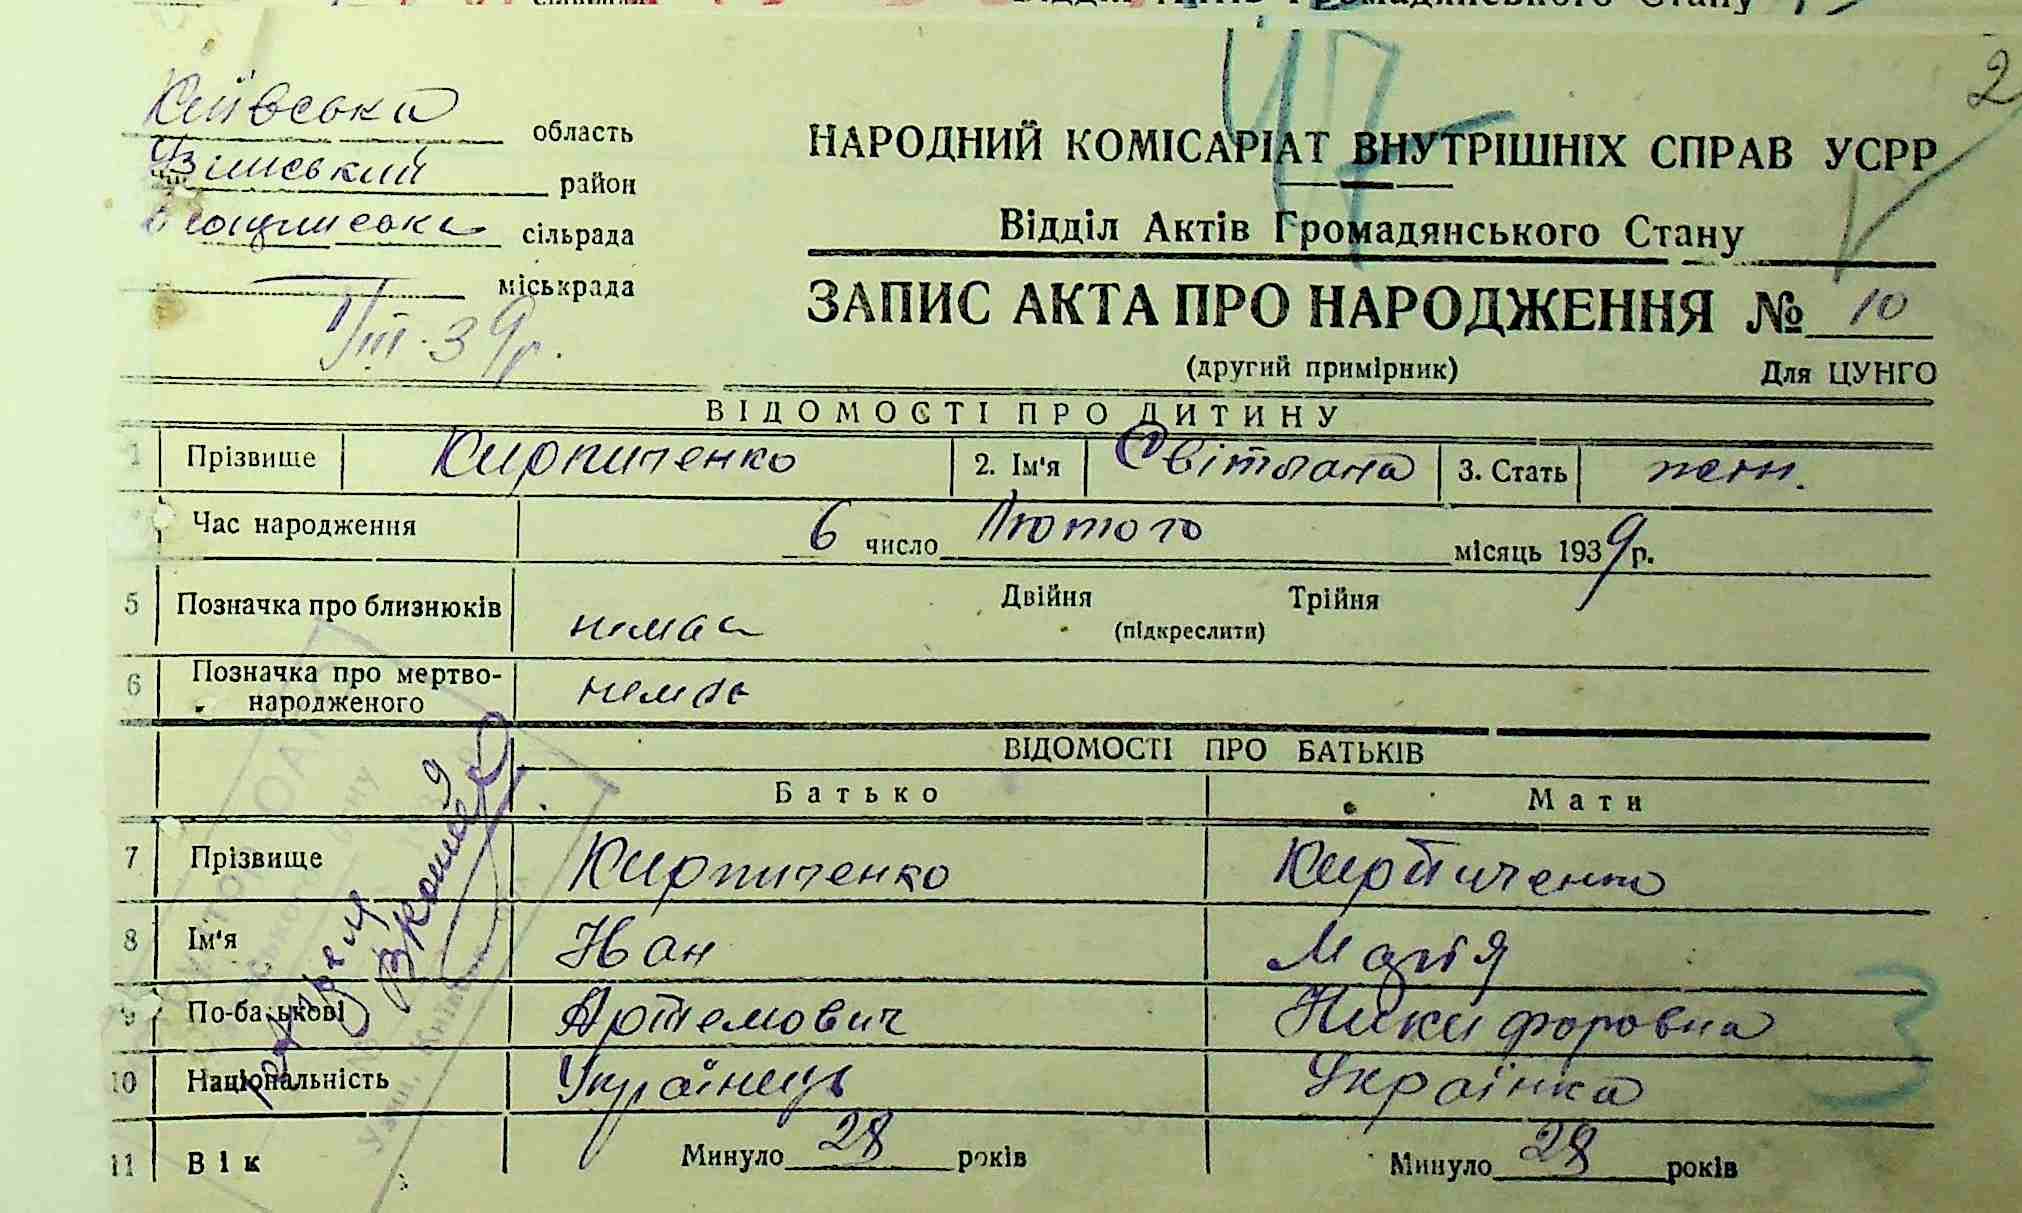 Відділ Актів Громадянського Стану
47
2
Київська область
район
сільрада
міськрада
1/III-39р.
НАРОДНИЙ КОМІСАРІАТ ВНУТРІШНІХ СПРАВ УСРР
Відділ Актів Громадянського Стану
ЗАПИС АКТА ПРО НАРОДЖЕННЯ № 10
(другий примірник) Для ЦУНГО
ВІДОМОСТІ ПРО ДИТИНУ
1 Прізвище Кирпиченко 2. Ім'я Світлана 3. Стать жін.
Час народження 6 число Лютого місяць 1939 р.
5 Позначка про близнюків немає Двійня Трійня
(підкреслити)
6 Позначка про мертво-
народженого немає
ВІДОМОСТІ ПРО БАТЬКІВ
Батько Мати
7 Прізвище Кирпиченко Кирпиченко
8 Ім'я Іван Марія
9 По-батькові Артемович Никифоровна
10 Національність Українець Українка
11 Вік Минуло 28 років Минуло 28 років
3